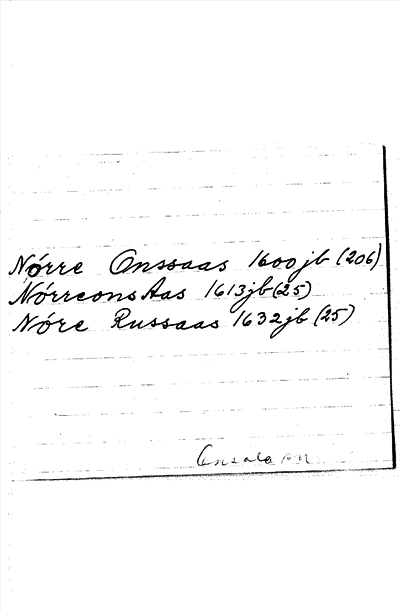 Nórre Onssaas 1600 jb (206)
NórreonsAas 1613 jb (25)
Nóre Russaas 1632 jb (25)
Onsala